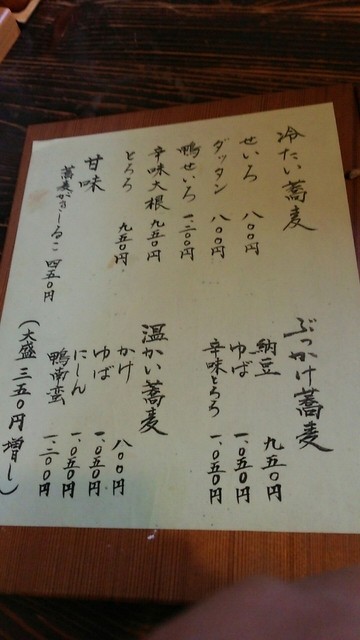 冷たい蕎麦
せいろ 八〇〇円
ダッタン 八〇〇円
鴨せいろ 一、二〇〇円
辛味大根 九五〇円
とろろ 九五〇円
甘味
蕎麦がきしるこ 四五〇円
ぶっかけ蕎麦
納豆 九五〇円
ゆば 一、〇五〇円
辛味とろろ 一、〇五〇円
温かい蕎麦
かけ 八〇〇円
ゆば 一、〇五〇円
にしん 一、〇五〇円
鴨南蛮 一、二〇〇円
(大盛三五〇円増し)